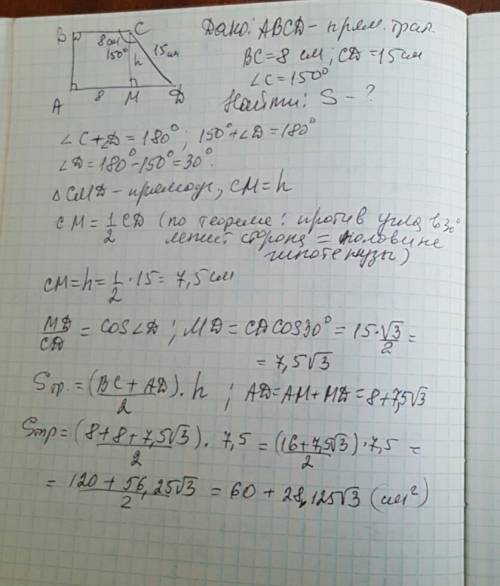 B C Дано: ABCD - прям. трап.
8 см 150° h 15 см BC = 8 см; CD = 15 см
∠C = 150°
A 8 M D Найти: S - ?
∠C + ∠D = 180°; 150° + ∠D = 180°
∠D = 180° - 150° = 30°.
△CMD - прямоуг, CM = h
CM = 1/2 CD (по теореме: против угла в 30°
лежит сторона = половине
гипотенузы)
CM = h = 1/2 · 15 = 7,5 см
MD/CD = cos∠D; MD = CD cos30° = 15 · √3/2 =
= 7,5√3
Sтр. = (BC + AD)/2 · h; AD = AM + MD = 8 + 7,5√3
Sтр = (8 + 8 + 7,5√3)/2 · 7,5 = (16 + 7,5√3)/2 · 7,5 =
= (120 + 56,25√3)/2 = 60 + 28,125√3 (см²)